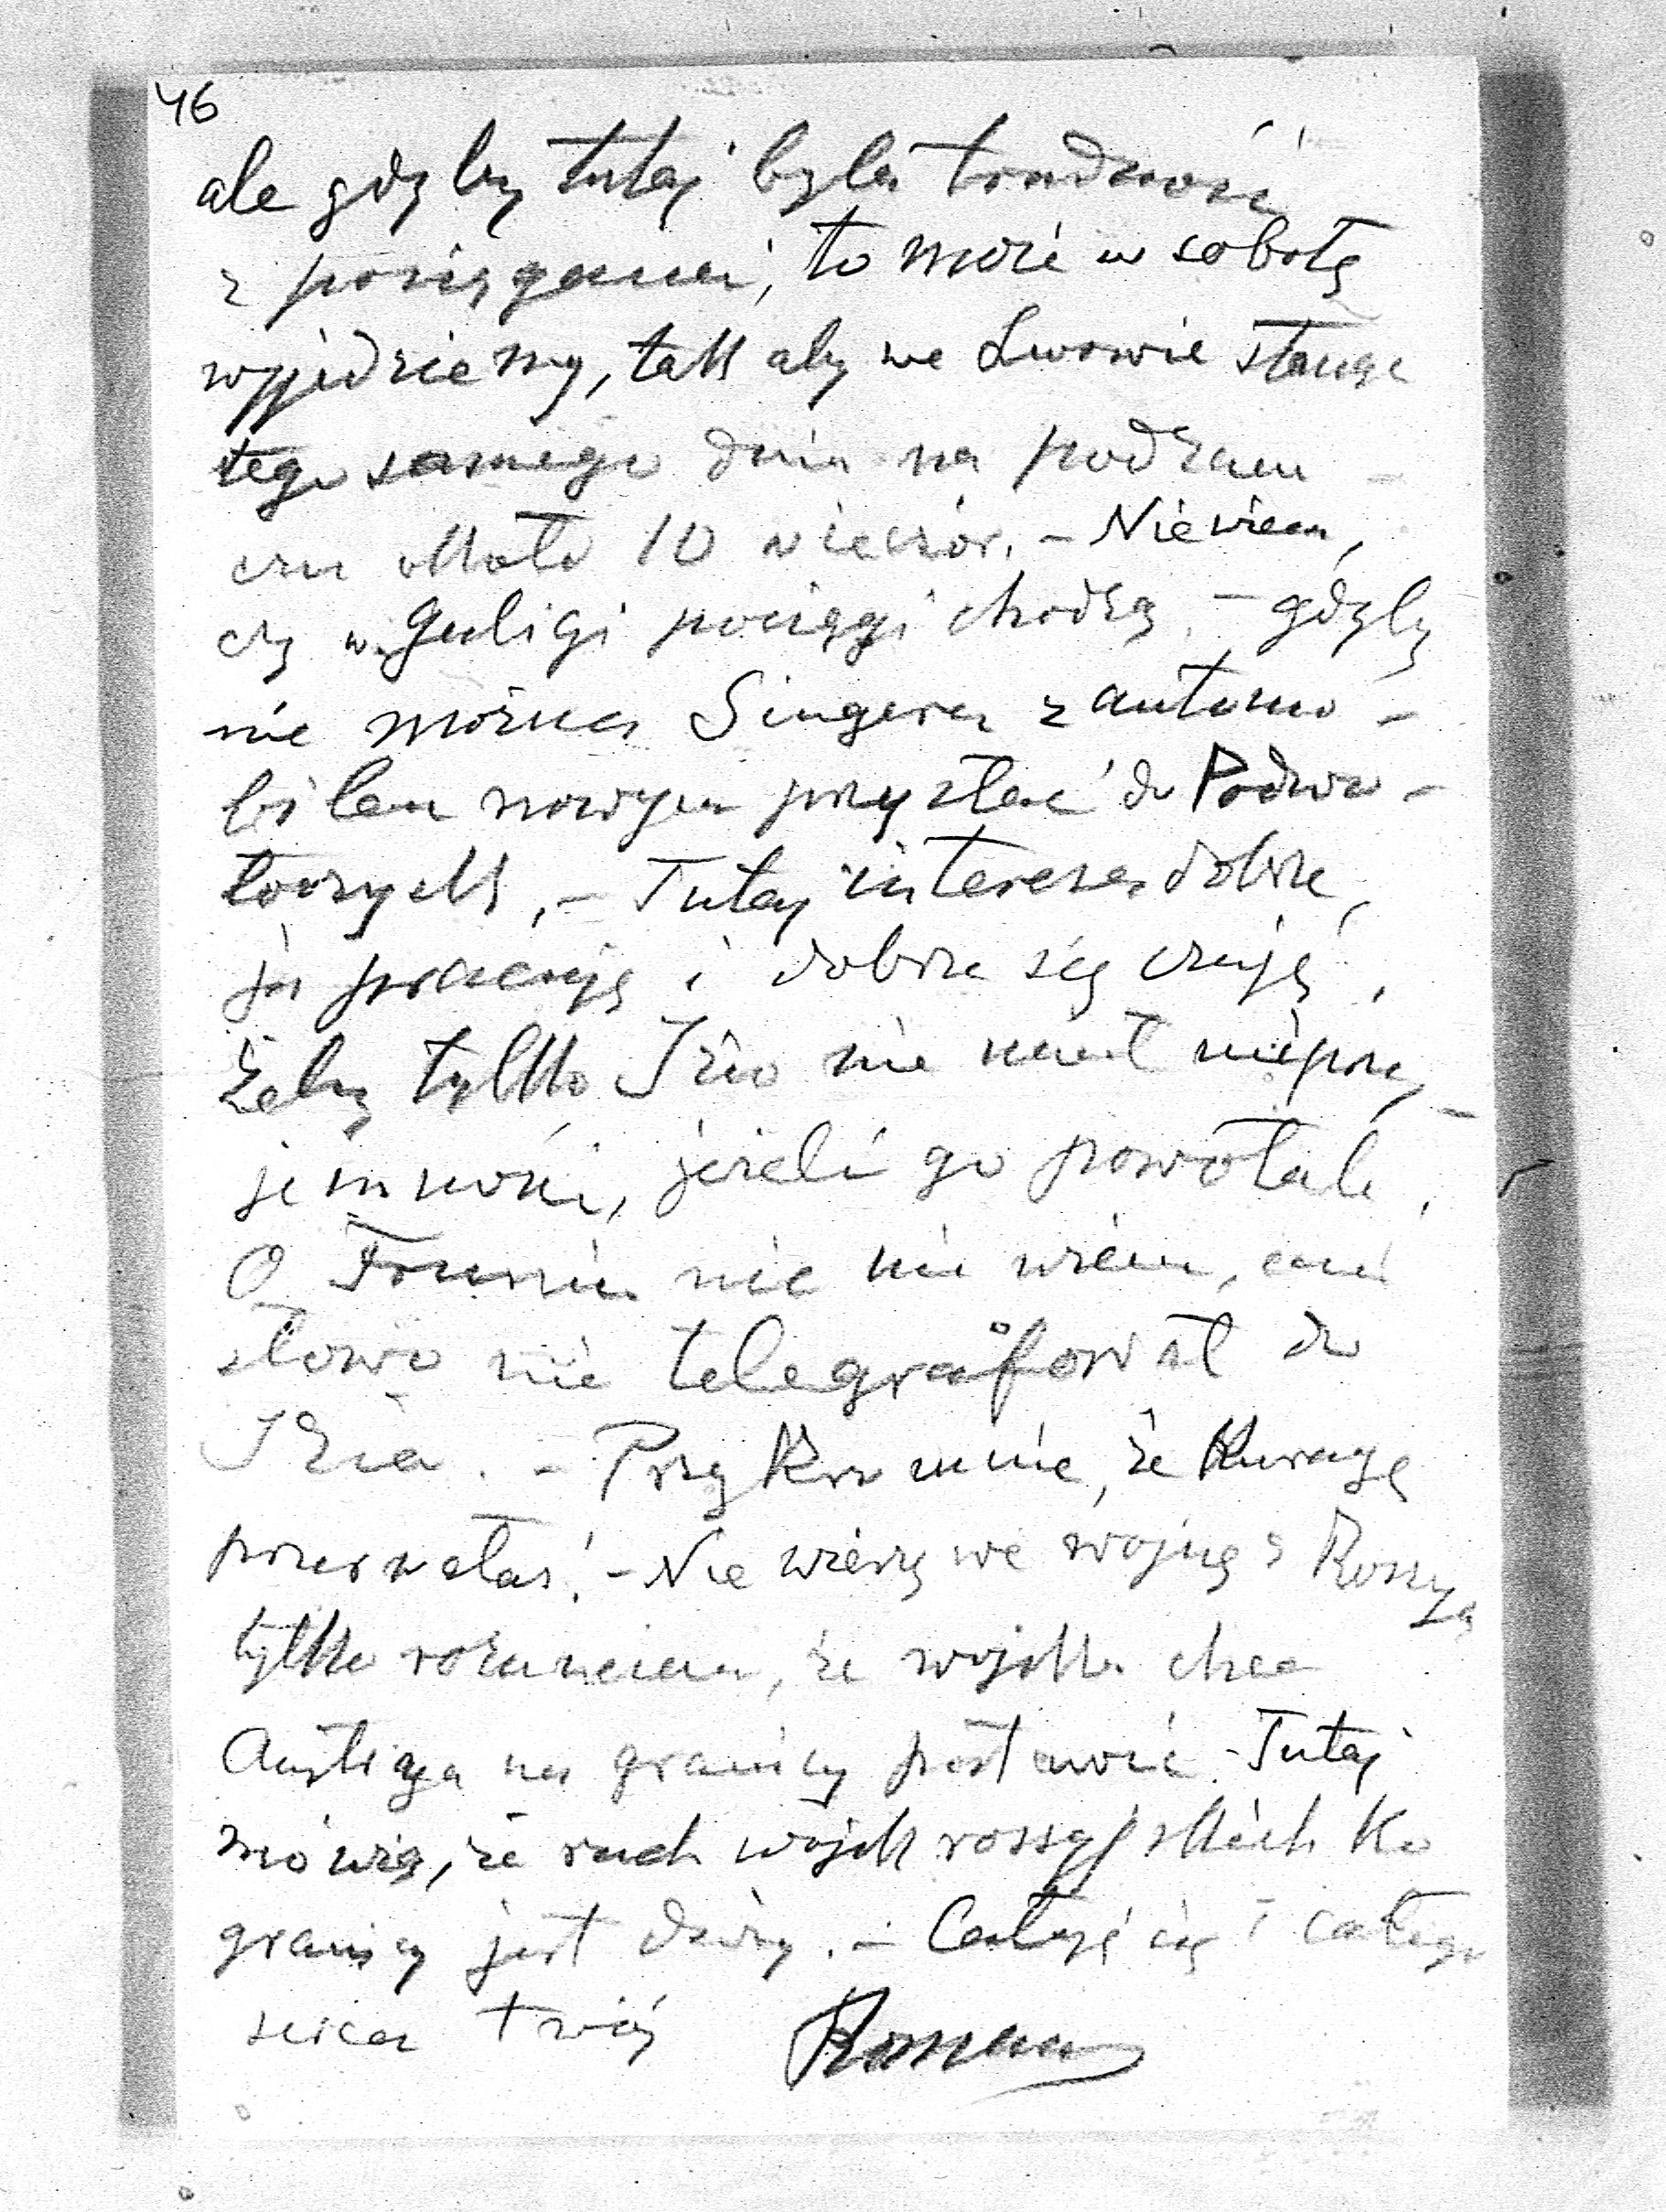 46
ale gdyby tutaj była trudność
z pociągami, to może w sobotę
wyjedziemy, tak aby we Lwowie stanąć
tego samego dnia na podzam-
czu około 10 wieczór. – Nie wiem,
czy w Galicji pociągi chodzą, – gdyby
nie można Singera z automo-
bilem nowym przysłać do Podwo-
łoczysk, – Tutaj interesa dobre,
ja pracuję i dobrze się czuję,
żeby tylko Izio nie miał nieprzy-
jemności, jeżeli go powołali.
O Franiu nic nie wiem, ani
słowa nie telegrafował do
Izia. – Przykro mnie, że Kurację
przerwałaś! – Nie wierzę we wojnę z Rossyą
tylko rozumiem, że wojska chce
Austrya na granicy postawić. – Tutaj
mówią, że ruch wojsk rossyjskich ku
granicy jest duży. – Całuję cię i całego
serca twój Roman